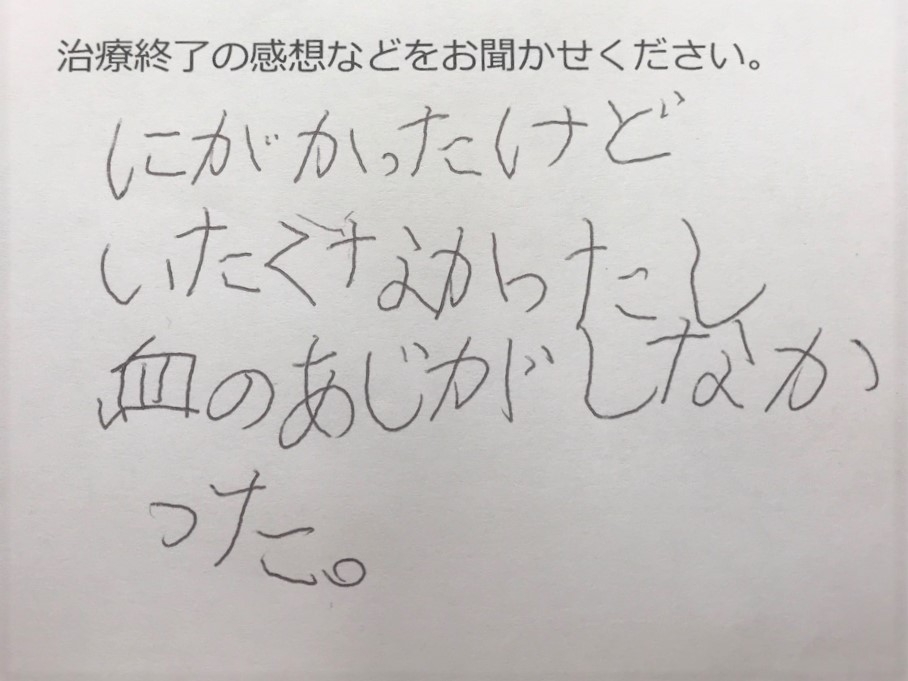 治療終了の感想などをお聞かせください。
にがかったけど
いたくなかったし
血のあじがしなか
った。